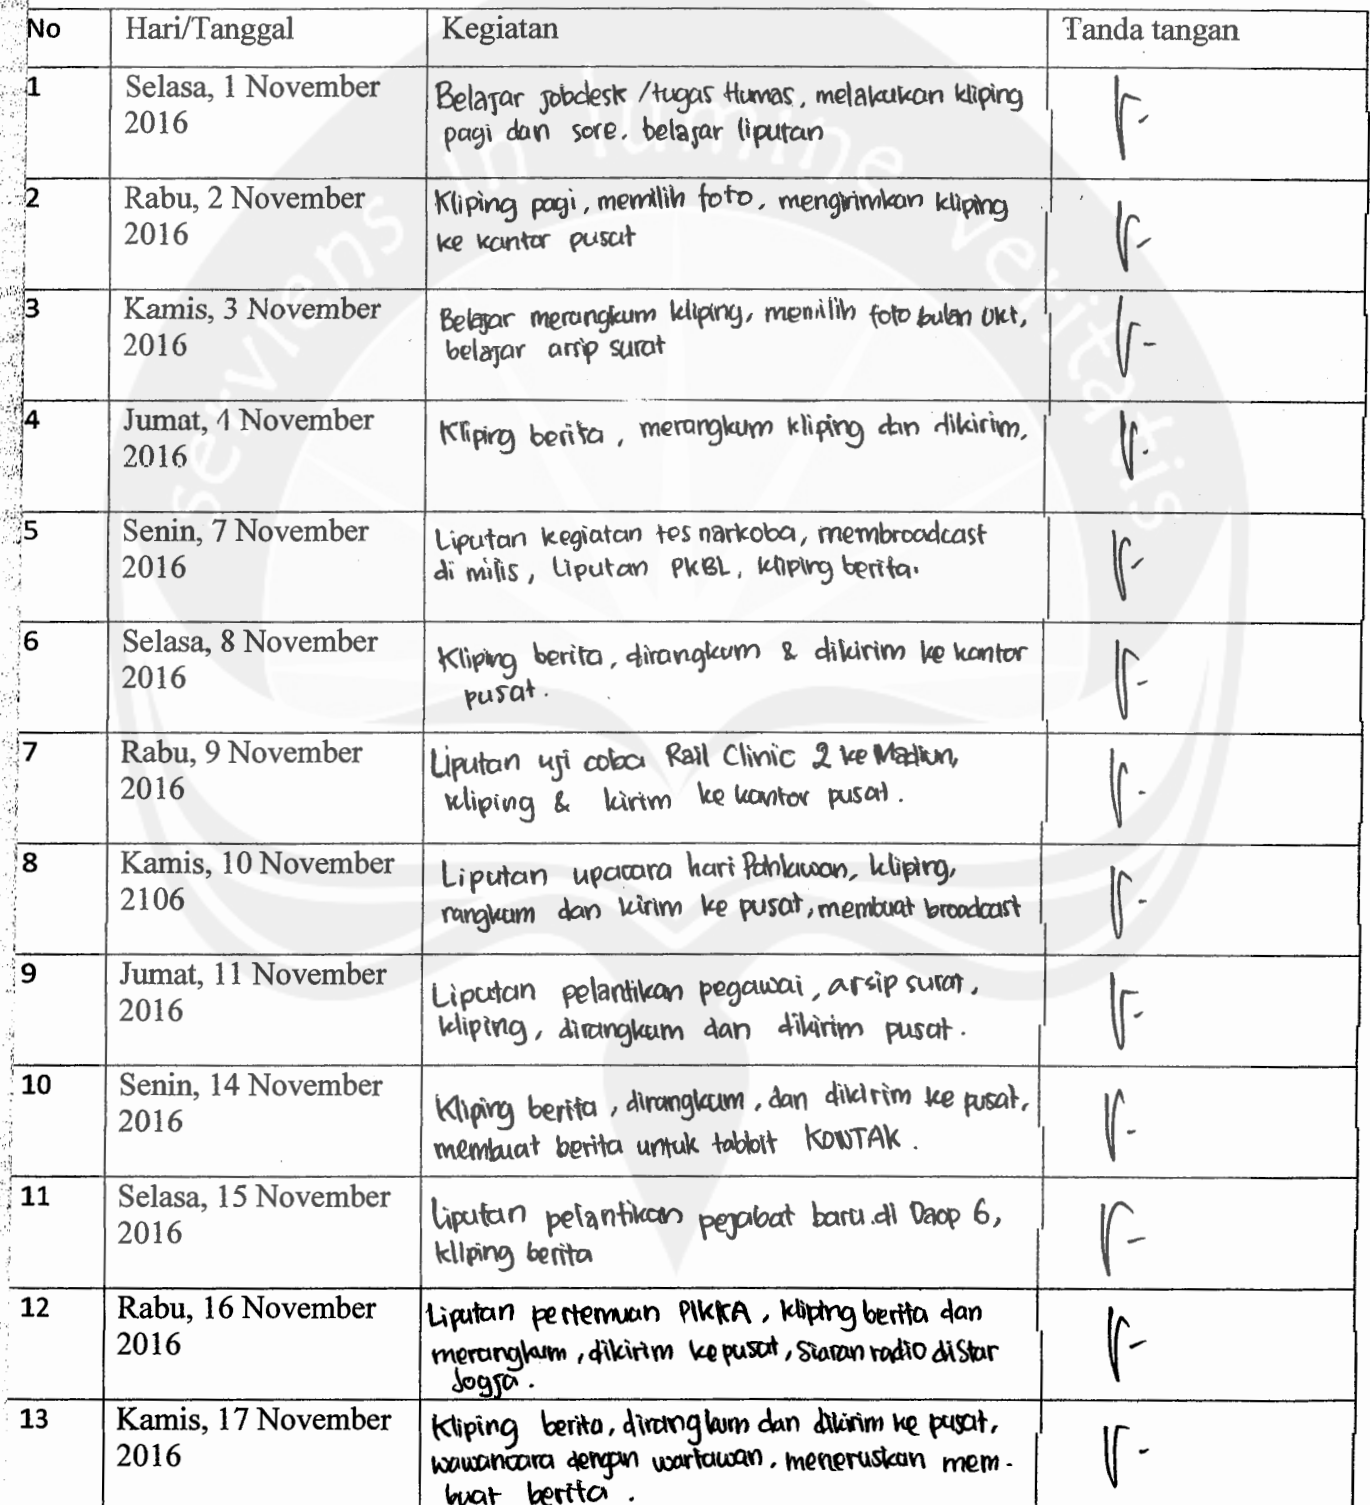 No Hari/Tanggal Kegiatan Tanda tangan
1 Selasa, 1 November Belajar jobdesk /tugas Humas, melakukan kliping
2016 pagi dan sore. belajar liputan
2 Rabu, 2 November Kliping pagi, memilih foto, mengirimkan kliping
2016 ke kantor pusat
3 Kamis, 3 November Belajar merangkum kliping, memilih foto bulan Okt,
2016 belajar arsip surat
4 Jumat, 4 November Kliping berita, merangkum kliping dan dikirim.
2016
5 Senin, 7 November Liputan kegiatan tes narkoba, membroadcast
2016 di milis, Liputan PKBL, kliping berita.
6 Selasa, 8 November Kliping berita, dirangkum & dikirim ke kantor
2016 pusat.
7 Rabu, 9 November Liputan uji coba Rail Clinic 2 ke Madiun,
2016 kliping & kirim ke kantor pusat.
8 Kamis, 10 November Liputan upacara hari Pahlawan, kliping,
2106 rangkum dan kirim ke pusat, membuat broadcast
9 Jumat, 11 November Liputan pelantikan pegawai, arsip surat,
2016 kliping, dirangkum dan dikirim pusat.
10 Senin, 14 November Kliping berita, dirangkum, dan dikirim ke pusat,
2016 membuat berita untuk tabloit KONTAK.
11 Selasa, 15 November Liputan pelantikan pejabat baru di Daop 6,
2016 kliping berita
12 Rabu, 16 November Liputan pertemuan PIKKA, kliping berita dan
2016 merangkum, dikirim ke pusat, Siaran radio di Star
Jogja.
13 Kamis, 17 November Kliping berita, dirangkum dan dikirim ke pusat,
2016 wawancara dengan wartawan, meneruskan mem-
buat berita.
serviens in lumine veritatis